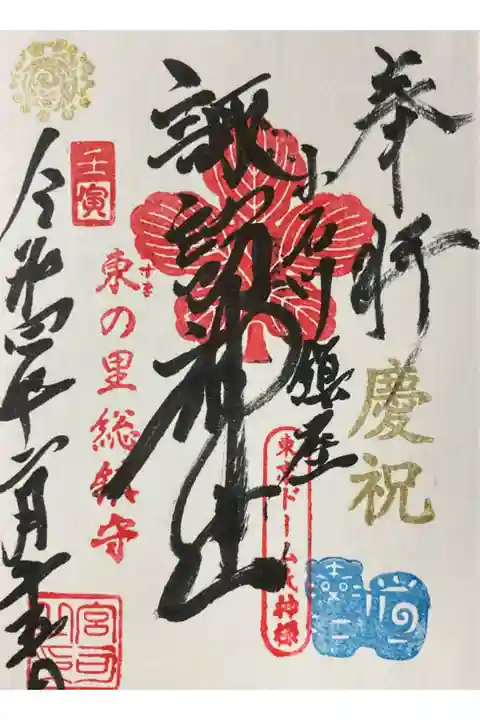 奉拝
慶祝
小石川鎮座
東京ドーム氏神様
諏訪神社
東の里総鎮守
壬寅
令和四年六月十五日
宮司之印